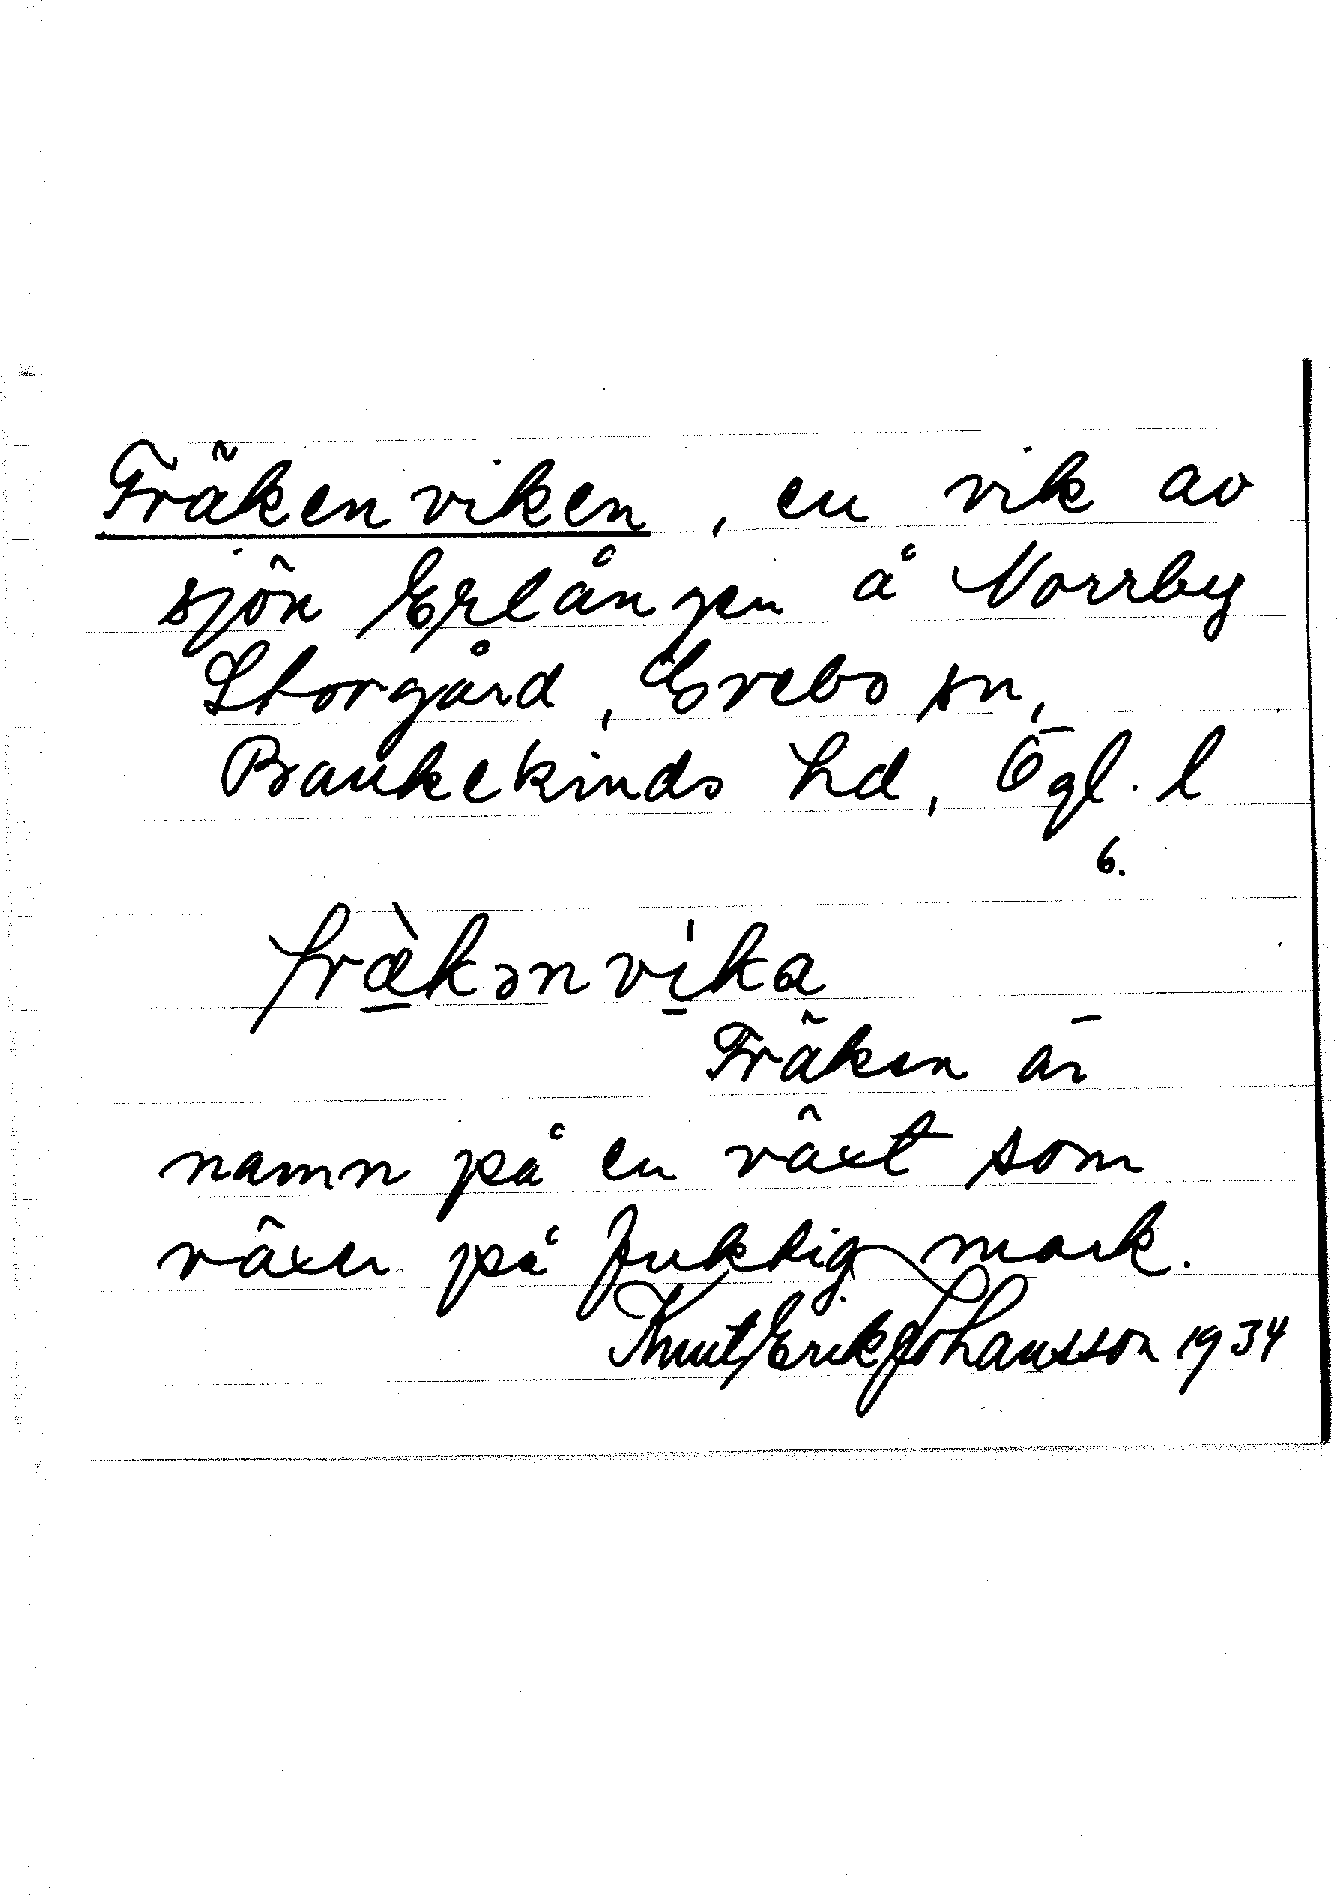 Fräkenviken, en vik av
sjön Erlången å Norrby
Storgård, Grebo sn,
Bankekinds hd, Ögl. l
6.
fræ̀kənvi̍ka
Fräken är
namn på en växt som
växer på fuktig mark.
Knut Erik Johansson 1934